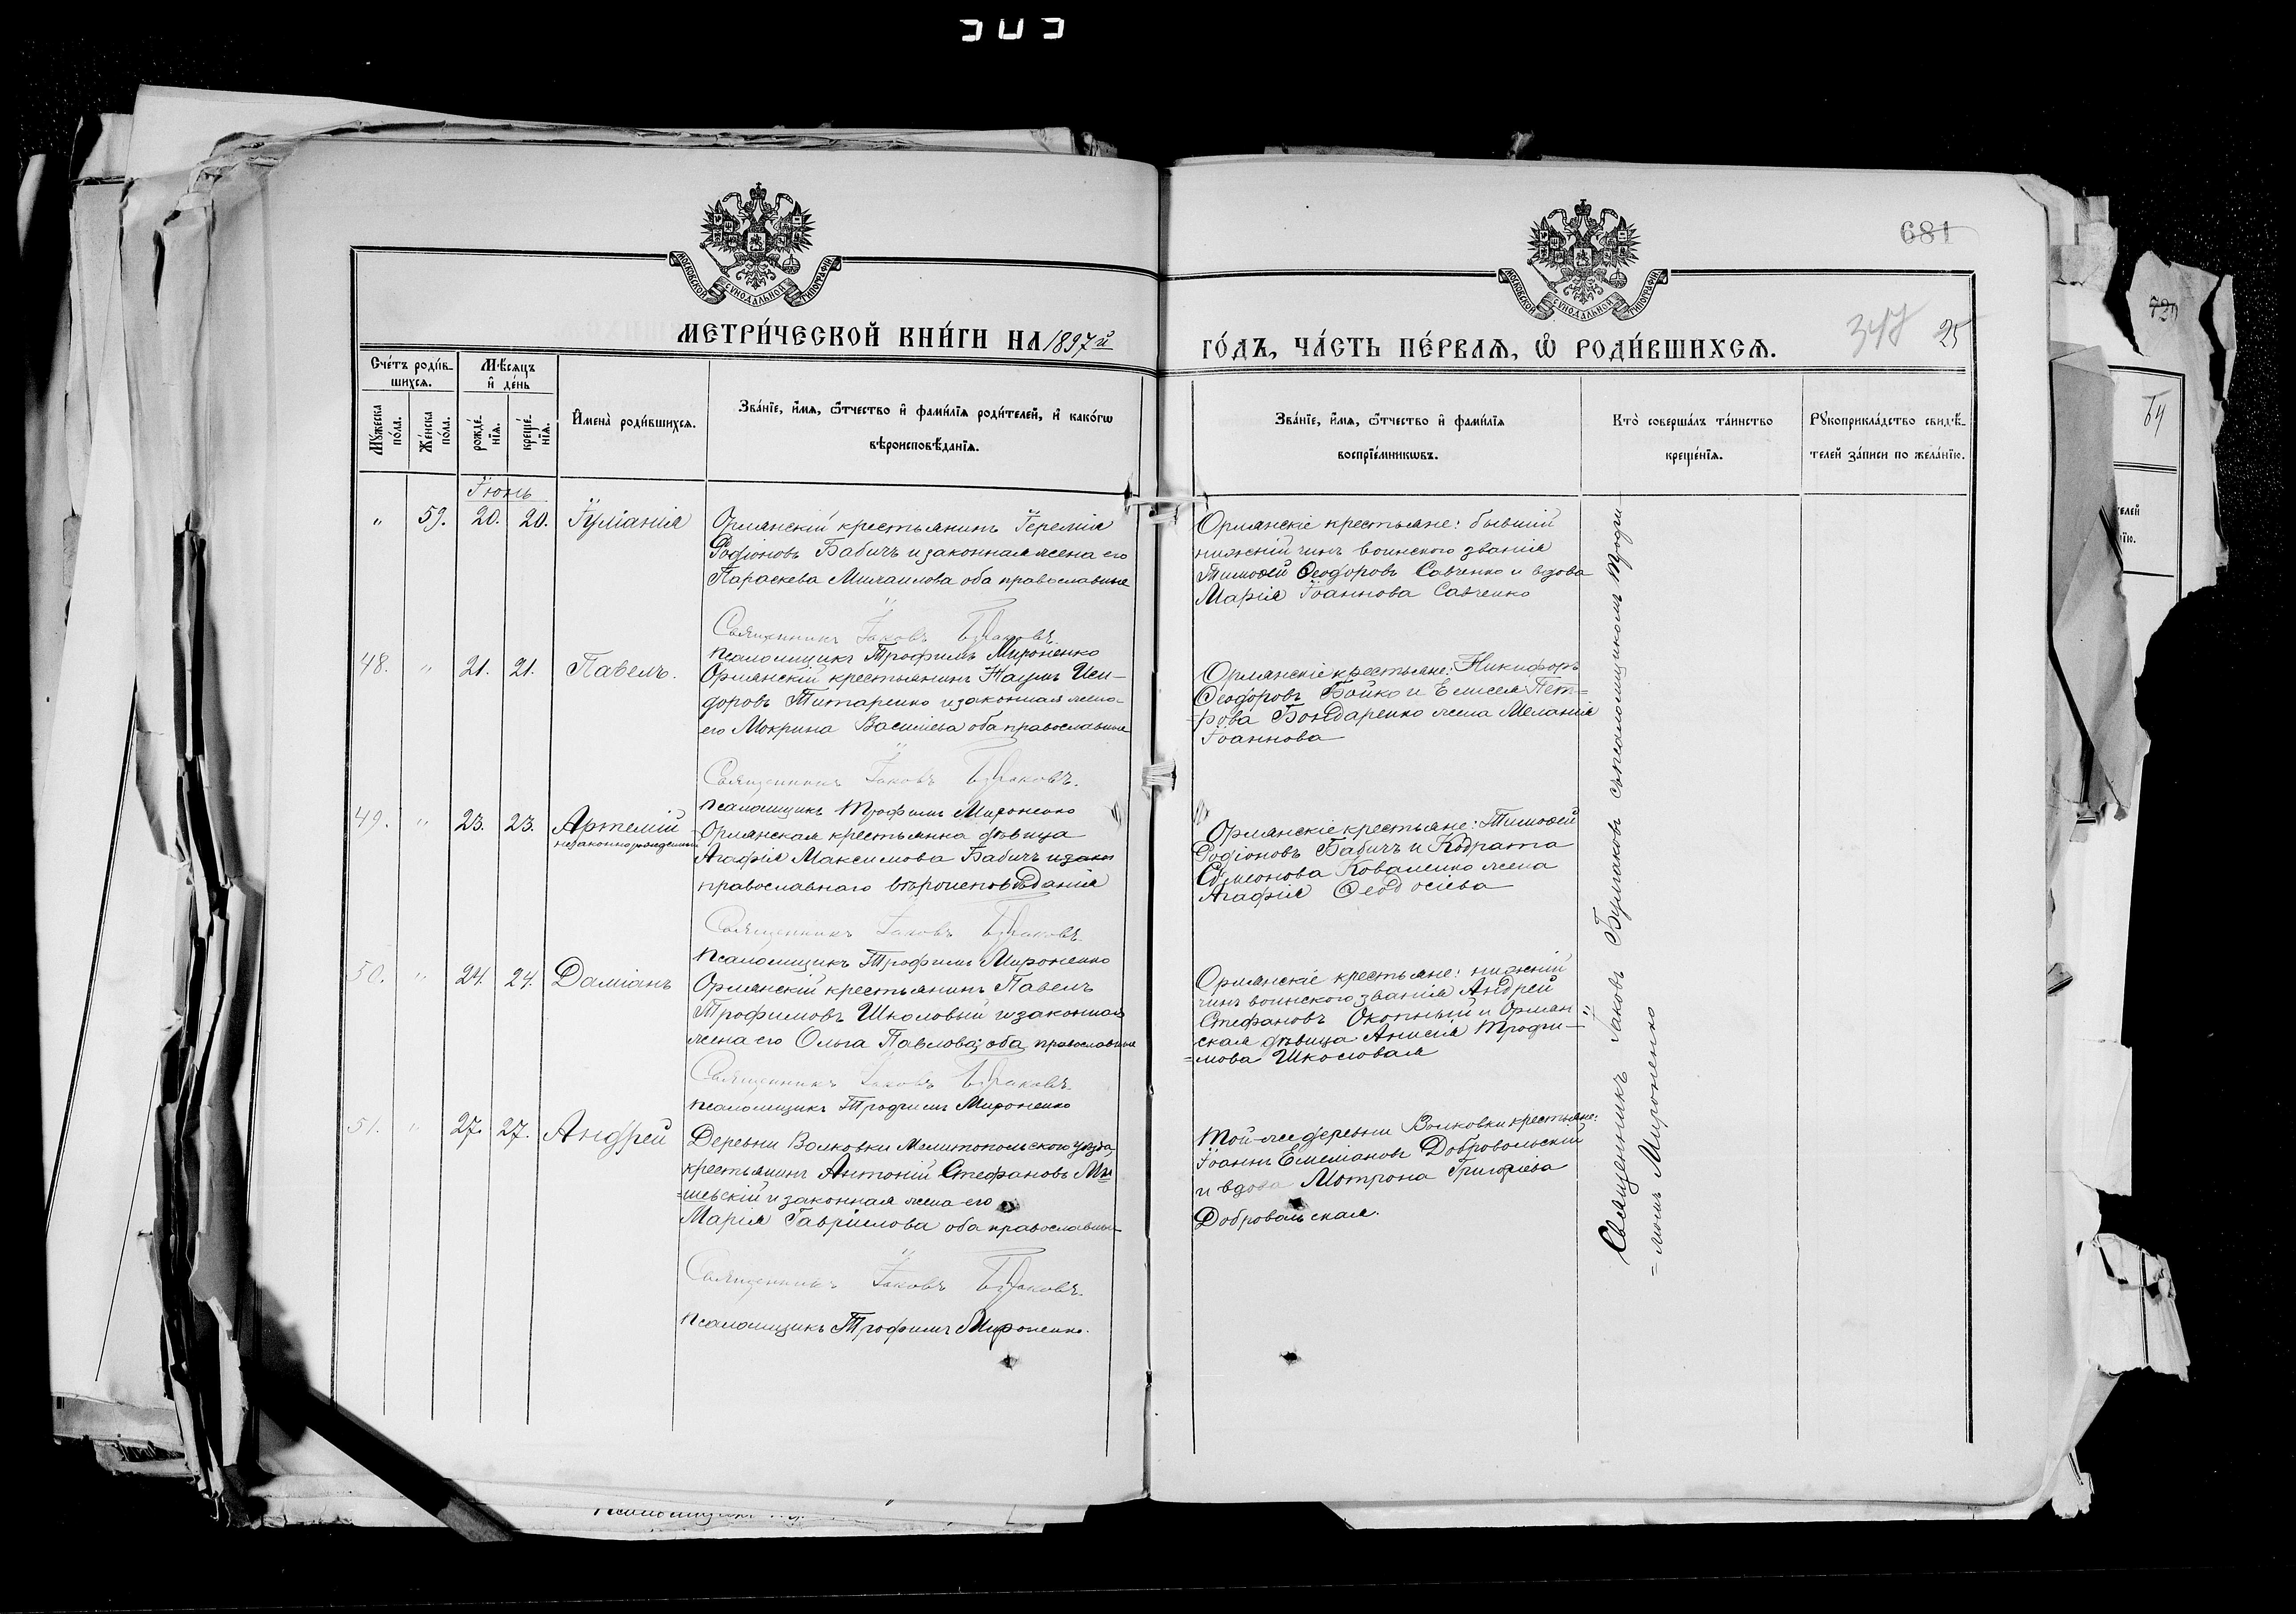 681
МОСКОВСКОЙ СУНОДАЛЬНОЙ ТИПОГРАФІИ
МОСКОВСКОЙ СУНОДАЛЬНОЙ ТИПОГРАФІИ
МЕТРИ́ЧЕСКОЙ КНИ́ГИ НА 1897й
ГО́ДЪ, ЧА́СТЬ ПЕ́РВАѦ, Ѽ РОДИ́ВШИХСѦ.
347 25
Сче́тъ роди́в-
шихсѧ.
Мѣ́сѧцъ
и҆ де́нь
Мꙋ́жеска
по́ла.
Же́нска
по́ла.
рожде́-
нїѧ.
креще́-
нїѧ.
И҆мена̀ роди́вшихсѧ.
Зва́нїе, и҆́мѧ, ѻ҆́тчество и҆ фами́лїѧ роди́телей, и҆ како́гѡ
вѣроисповѣ́данїѧ.
Зва́нїе, и҆́мѧ, ѻ҆́тчество и҆ фами́лїѧ
воспрїе́мникѡвъ.
Кто̀ соверша́лъ та́инство
креще́нїѧ.
Рꙋкоприкла́дство свидѣ́-
телей за́писи по жела́нїю.
Іюнь
" 59. 20. 20. Іуліанія
Орлянскій крестьянинъ Іеремія
Родіоновъ Бабичъ и законная жена его
Параскева Михаилова оба православные
Священникъ Іаковъ Булгаковъ.
Псаломщикъ Трофимъ Мироненко
Орлянскіе крестьяне: бывшій
нижній чинъ воинского званія
Тимоѳей Ѳеодоровъ Савченко и вдова
Марія Іоаннова Савченко
48. " 21. 21. Павелъ.
Орлянскій крестьянинъ Наумъ Иси-
доровъ Титаренко и законная жена
его Мокрина Василіева оба православные
Священникъ Іаковъ Булгаковъ.
Псаломщикъ Трофимъ Мироненко
Орлянскіе крестьяне: Никифоръ
Ѳеодоровъ Бойко и Елисея Пет=
=рова Бондаренко жена Меланія
Іоаннова
49. " 23. 23. Артемій
незаконнорожденный
Орлянская крестьянка дѣвица
Агафія Максимова Бабичъ и закон
православнаго вѣроисповѣданія
Священникъ Іаковъ Булгаковъ.
Псаломщикъ Трофимъ Мироненко
Орлянскіе крестьяне: Тимоѳей
Родіоновъ Бабичъ и Кодрата
Сѷмеонова Коваленко жена
Агафія Ѳеодосіева
50. " 24. 24. Даміанъ
Орлянскій крестьянинъ Павелъ
Трофимовъ Школовый и законная
жена его Ольга Павлова; оба православные
Священникъ Іаковъ Булгаковъ.
Псаломщикъ Трофимъ Мироненко
Орлянскіе крестьяне: нижній
чинъ воинского званія Андрей
Стефановъ Окопный и Орлян=
ская дѣвица Анисія Трофи-
=мова Школовая
51. " 27. 27. Андрей
Деревни Волковки Мелитопольского уѣзда,
крестьянинъ Антоній Стефановъ Ми
=шевскій и законная жена его
Марія Гавріилова оба православны
Священникъ Іаковъ Булгаковъ.
Псаломщикъ Трофимъ Мироненко.
Той-же деревни Волковки крестьяне:
Іоаннъ Емеліановъ Добровольскій
и вдова Мотрона Григоріева
Добровольская.
Священникъ Іаковъ Булгаковъ съ псаломщикомъ Трофи-
=момъ Мироненко